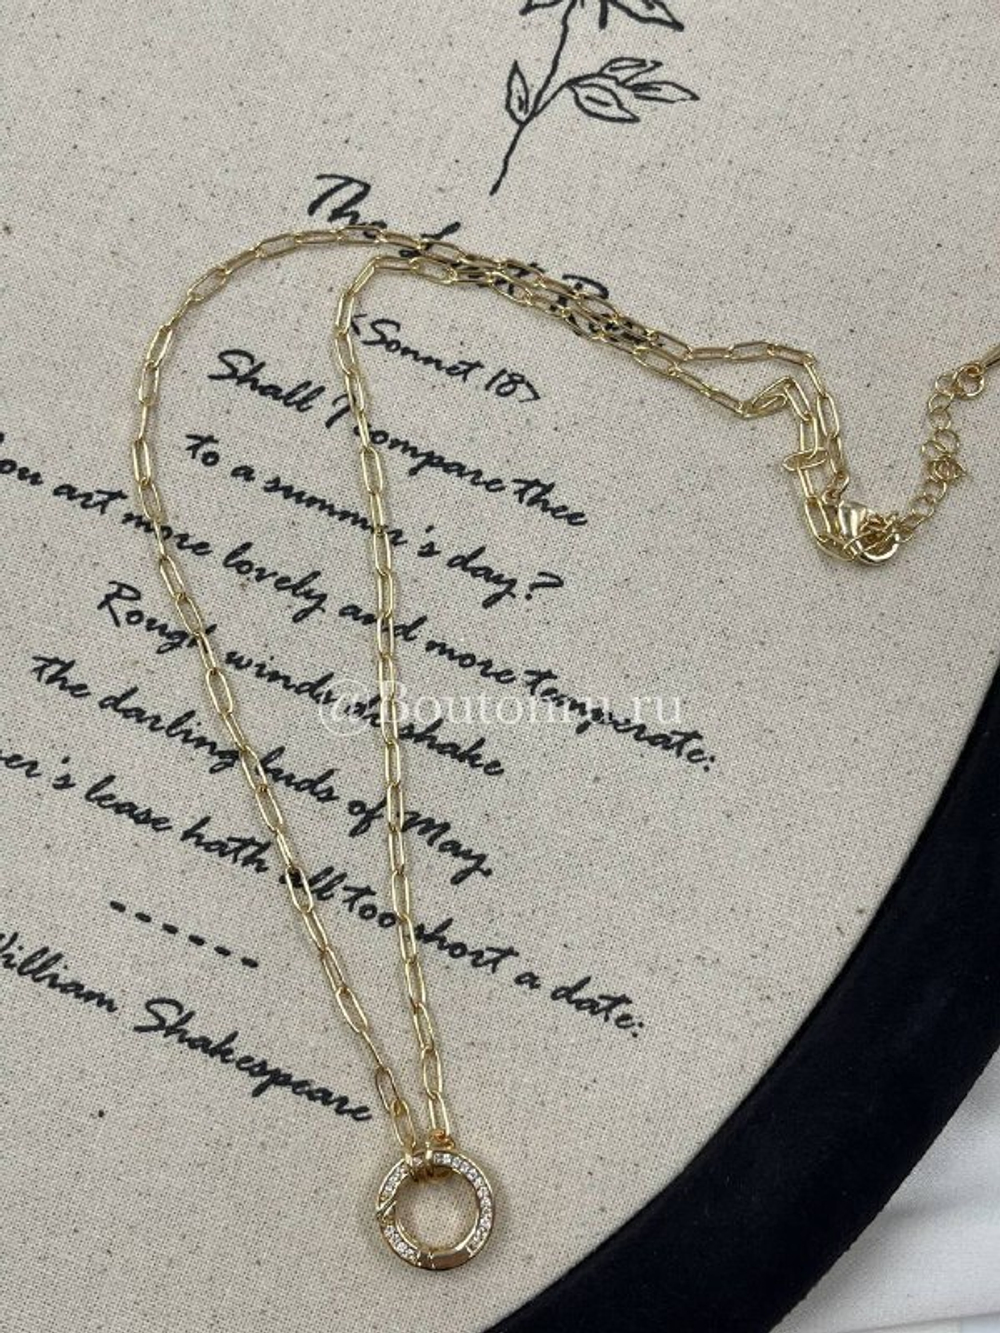 The
<Sonnet 18>
Shall I compare thee
to a summer's day?
art more lovely and more temperate:
Rough winds do shake
the darling buds of May,
lease hath all too short a date:
-----
William Shakespeare
@Boutonru.ru